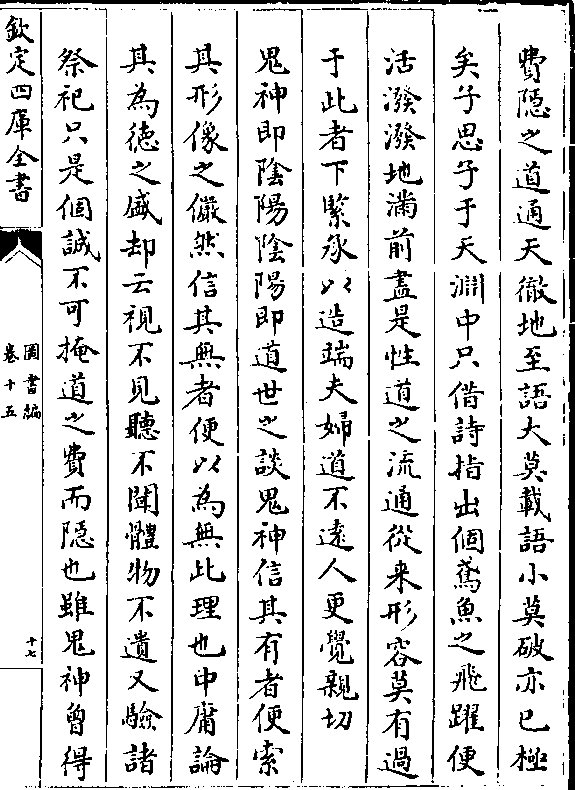 費隱之道通天徹地至語大莫載語小莫破亦已極
矣子思子于天淵中只借詩指出個鳶魚之飛躍便
活潑潑地滿前盡是性道之流通從来形容莫有過
于此者下緊承以造端夫婦道不逺人更覺親切
鬼神即陰陽陰陽即道世之談鬼神信其有者便索
其形像之儼然信其無者便以為無此理也中庸論
其為徳之盛却云視不見聽不聞體物不遺又驗諸
祭祀只是個誠不可掩道之費而隱也雖鬼神曾得
欽定四庫全書
圖書編
卷十五
十七